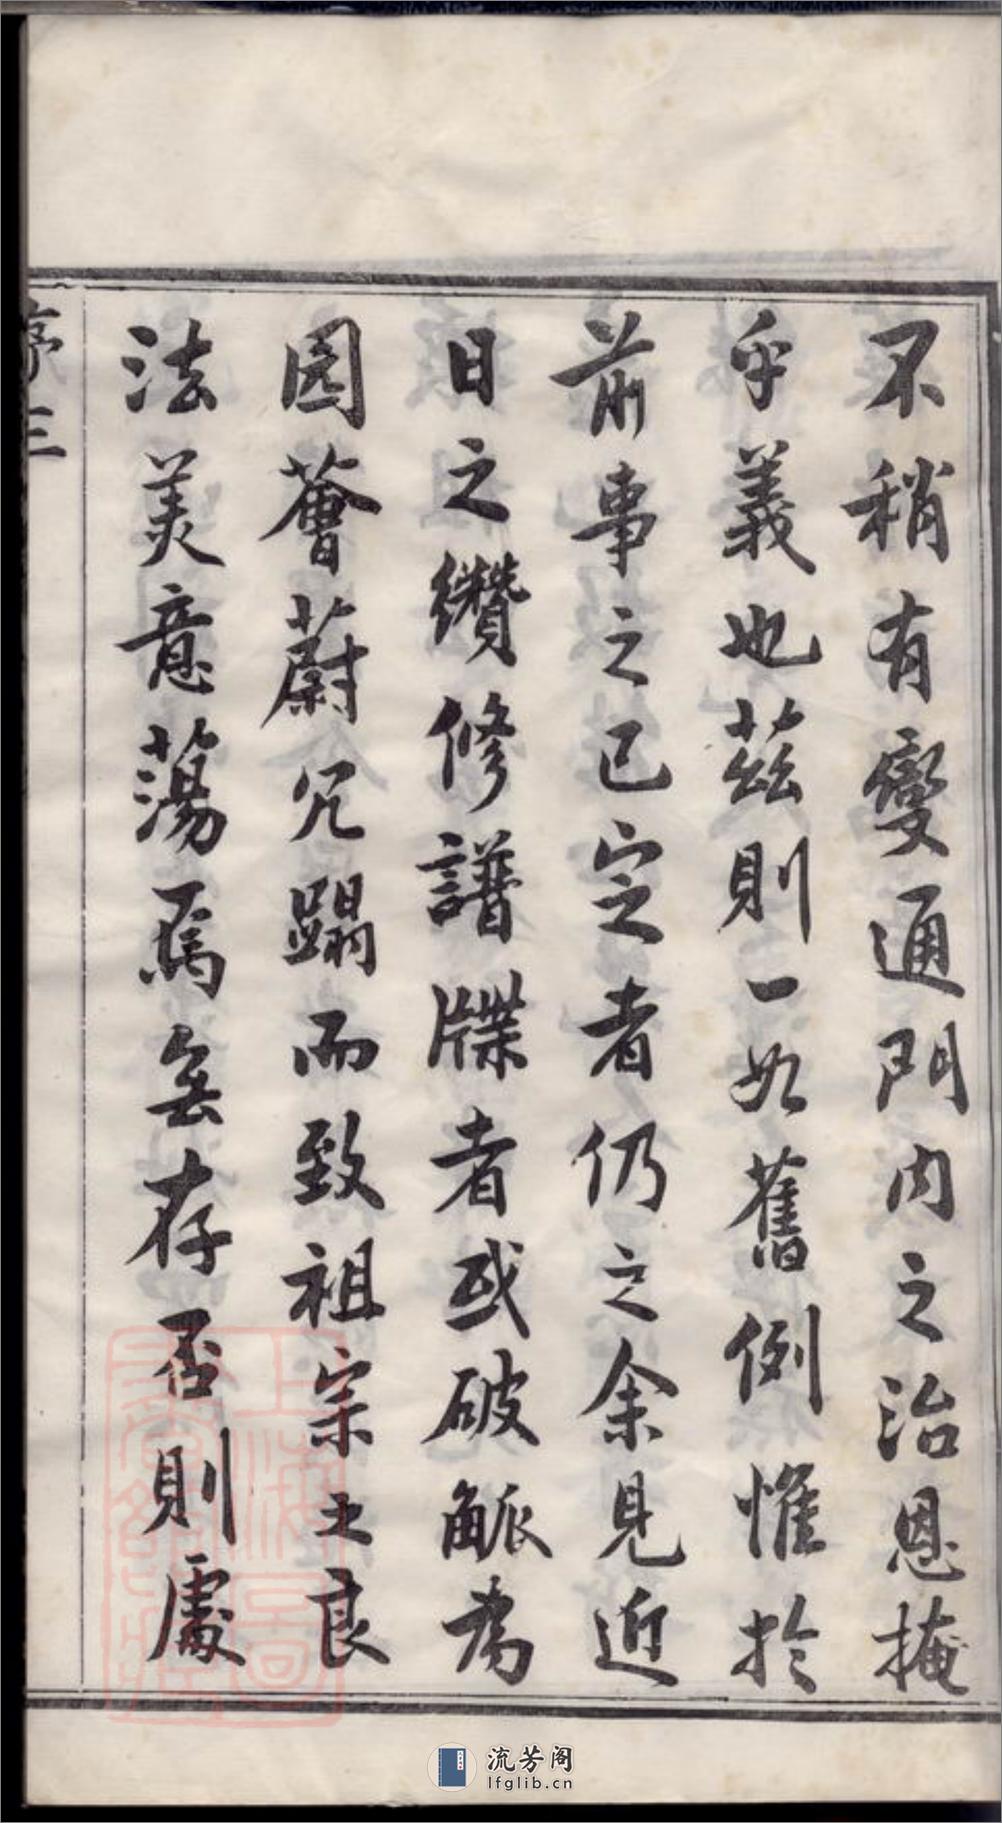 不稍有變通門內之治恩掩
乎義也茲則一如舊例惟於
前事之已定者仍之余見近
日之纘修譜牒者或破觚為
圜薈蔚冗蹋而致祖宗之良
法美意蕩焉無存否則處
序三
流芳阁
lfglib.cn